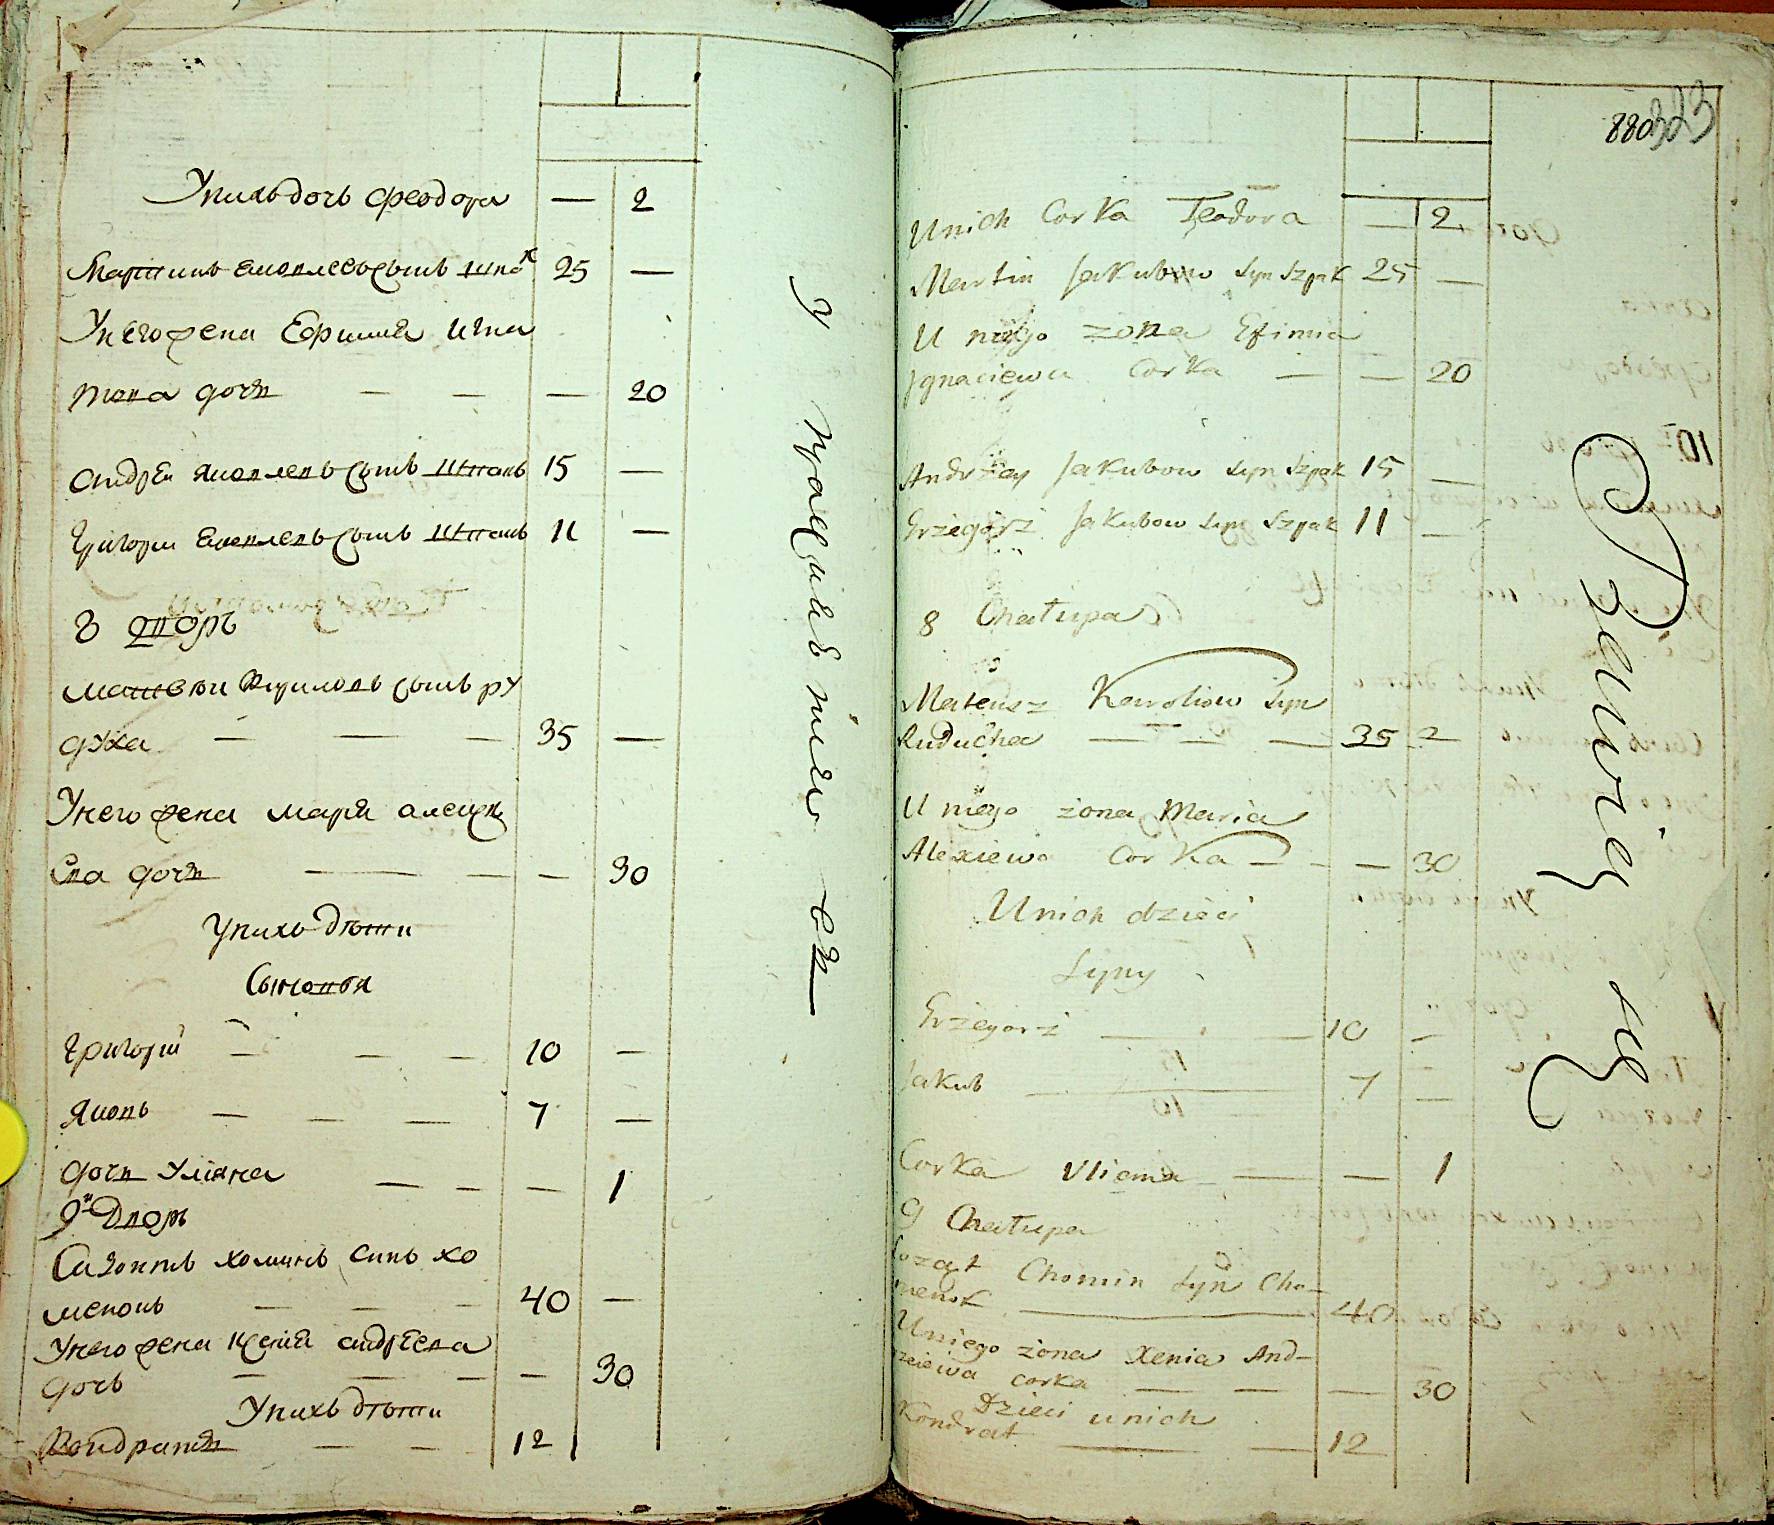 Унихъ дочь Феодора — 2
Мартинъ Яковлевъ сынъ Шпак 25 —
Унего жена Ефимия Игна
това дочь — — — 20
Андрей Яковлевъ сынъ Шпакъ 15 —
Григори Яковлевъ сынъ Шпакъ 11 —
8 Дворъ
Матвей сынъ Ру
духа — — — 35 —
Унего жена Мария Алецѣ
ева дочь — — — 30
Унихъ дѣти
Сыновья
Григорій — — — 10 —
Яковъ — — — 7 —
дочь Уліяна — — — 1
9й Дворъ
Хоминъ синъ Хо
менокъ — — — 40 —
Унего жена Ксения Андреева
дочь — — — — 30
Унихъ дѣти
Кондратий — — 12
880 323
Unich Corka Teodora — 2
Martin Jakubow Syn Szpak 25 —
U niego zona Efimia
Jgnaciewa Corka — — 20
Andrzey Jakubow Syn Szpak 15 —
Grzegorz Jakubow Syn Szpak 11 —
8 Chatupa
Mateusz Karolow Syn
Ruducha — — — 35 —
U niego zona Maria
Alexiewa Corka — — — 30
Unich dzieci
Syny
Grzegorz — — 10 —
Jakub — 7 —
Corka Uliana — — — 1
9 Chatupa
Chomin Syn Cho-
menok — 40
Uniego zona Xenia And-
rzeiewa corka — — — 30
Dzieci unich
Kondrat — — 12